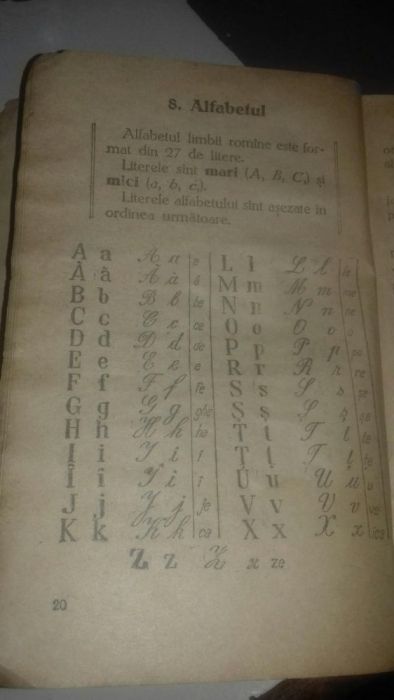 8. Alfabetul
Alfabetul limbii romîne este for-
mat din 27 de litere.
Literele sînt mari (A, B, C,) și
mici (a, b, c,).
Literele alfabetului sînt așezate în
ordinea următoare.
A a A a a L l L l le
Ă ă Ă ă ă M m M m me
B b B b be N n N n ne
C c C c ce O o O o o
D d D d de P p P p pe
E e E e e R r R r re
F f F f fe S s S s se
G g G g ghe Ș ș Ș ș șe
H h H h he T t T t te
I i I i i Ț ț Ț ț țe
Î î Î î î U u U u u
J j J j je V v V v ve
K k K k ca X x X x ics
Z z Z z ze
20